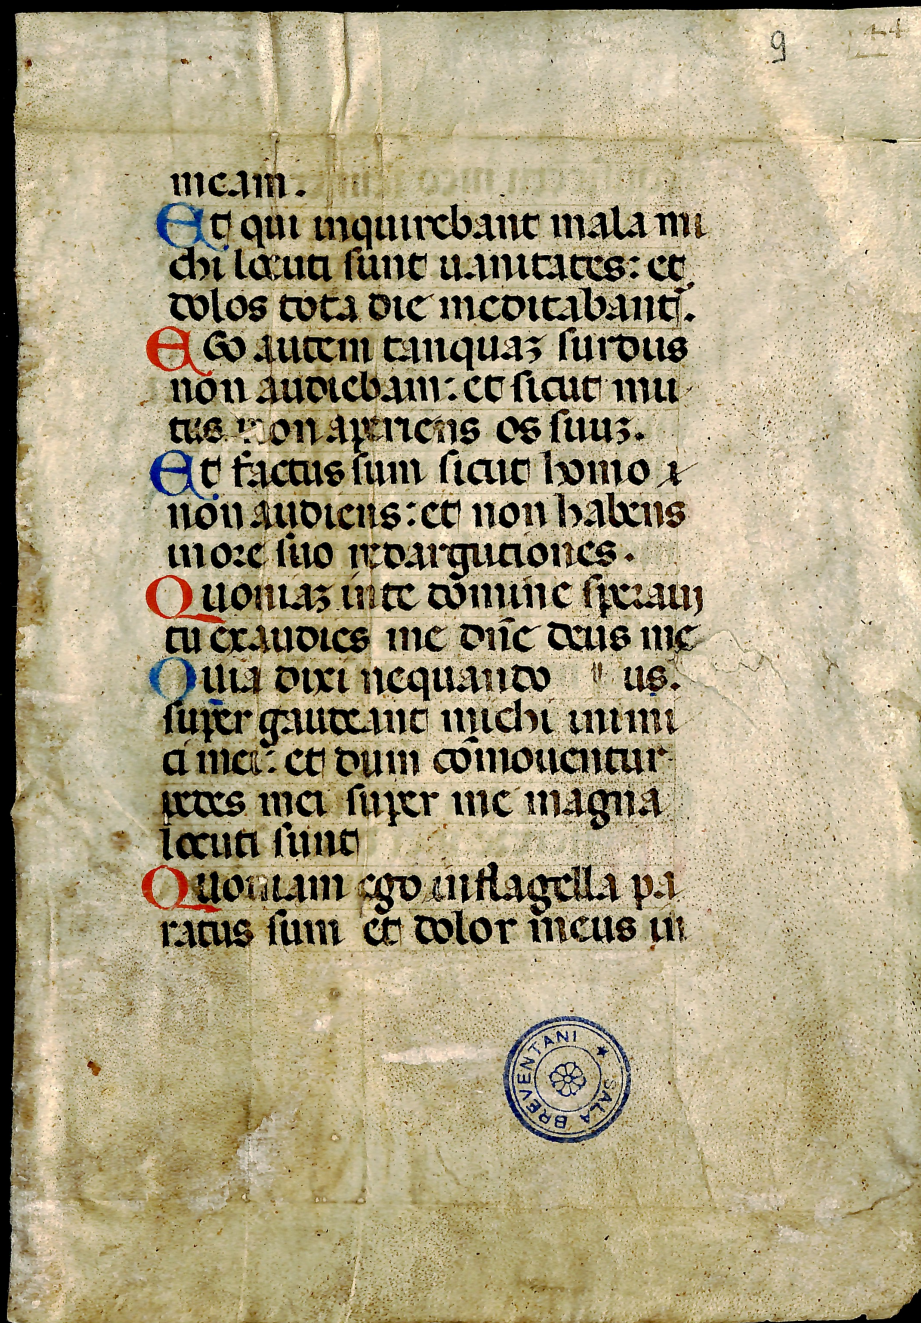 9
meam.
Et qui inquirebant mala mi
chi locuti sunt uanitates: et
dolos tota die meditabant̄.
Ego autem tanquaꝫ surdus
non audiebam: et sicut mu
tus non aperiens os suuꝫ.
Et factus sum sicut homo
non audiens: et non habens
in ore suo redargutiones.
Quoniaꝫ in te domine speraui
tu exaudies me dn̄e deus me
Quia dixi nequando us.
super gaudeant michi inimi
ci mei: et dum cōmouentur
pedes mei super me magna
locuti sunt
Quoniam ego in flagella pa
ratus sum et dolor meus in
SALA BREVENTANI ★